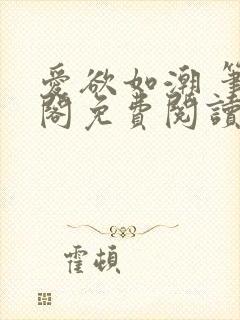 愛欲如潮 筆
閣免費閱讀
霍頓